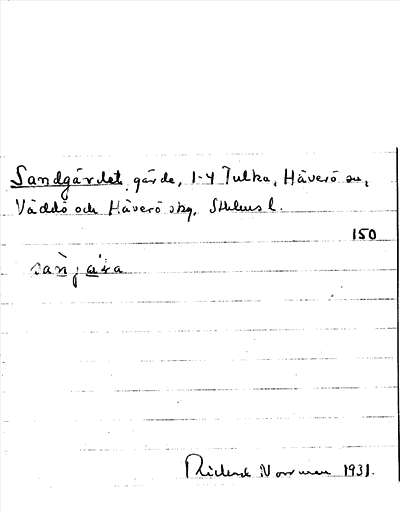 Sandgärdet, gärde, 1-4 Tulka, Häverö sn,
Väddö och Häverö skg, Sthlms l.
150
Norrman 1931.